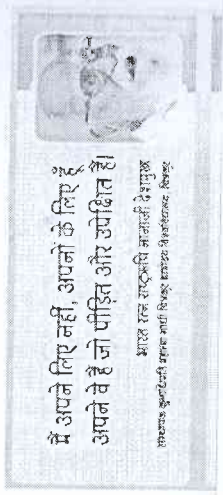 मैं अपने लिए नहीं, अपनों के लिए हूँ
अपने वे हैं जो पीड़ित और उपेक्षित हैं।
भारत रत्न राष्ट्रऋषि नानाजी देशमुख
संस्थापक कुलाधिपति महात्मा गांधी चित्रकूट ग्रामोदय विश्वविद्यालय, चित्रकूट